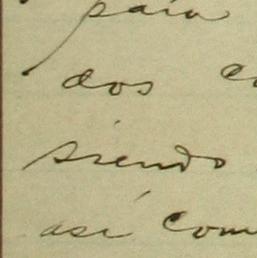 para
dos
siendo
así com